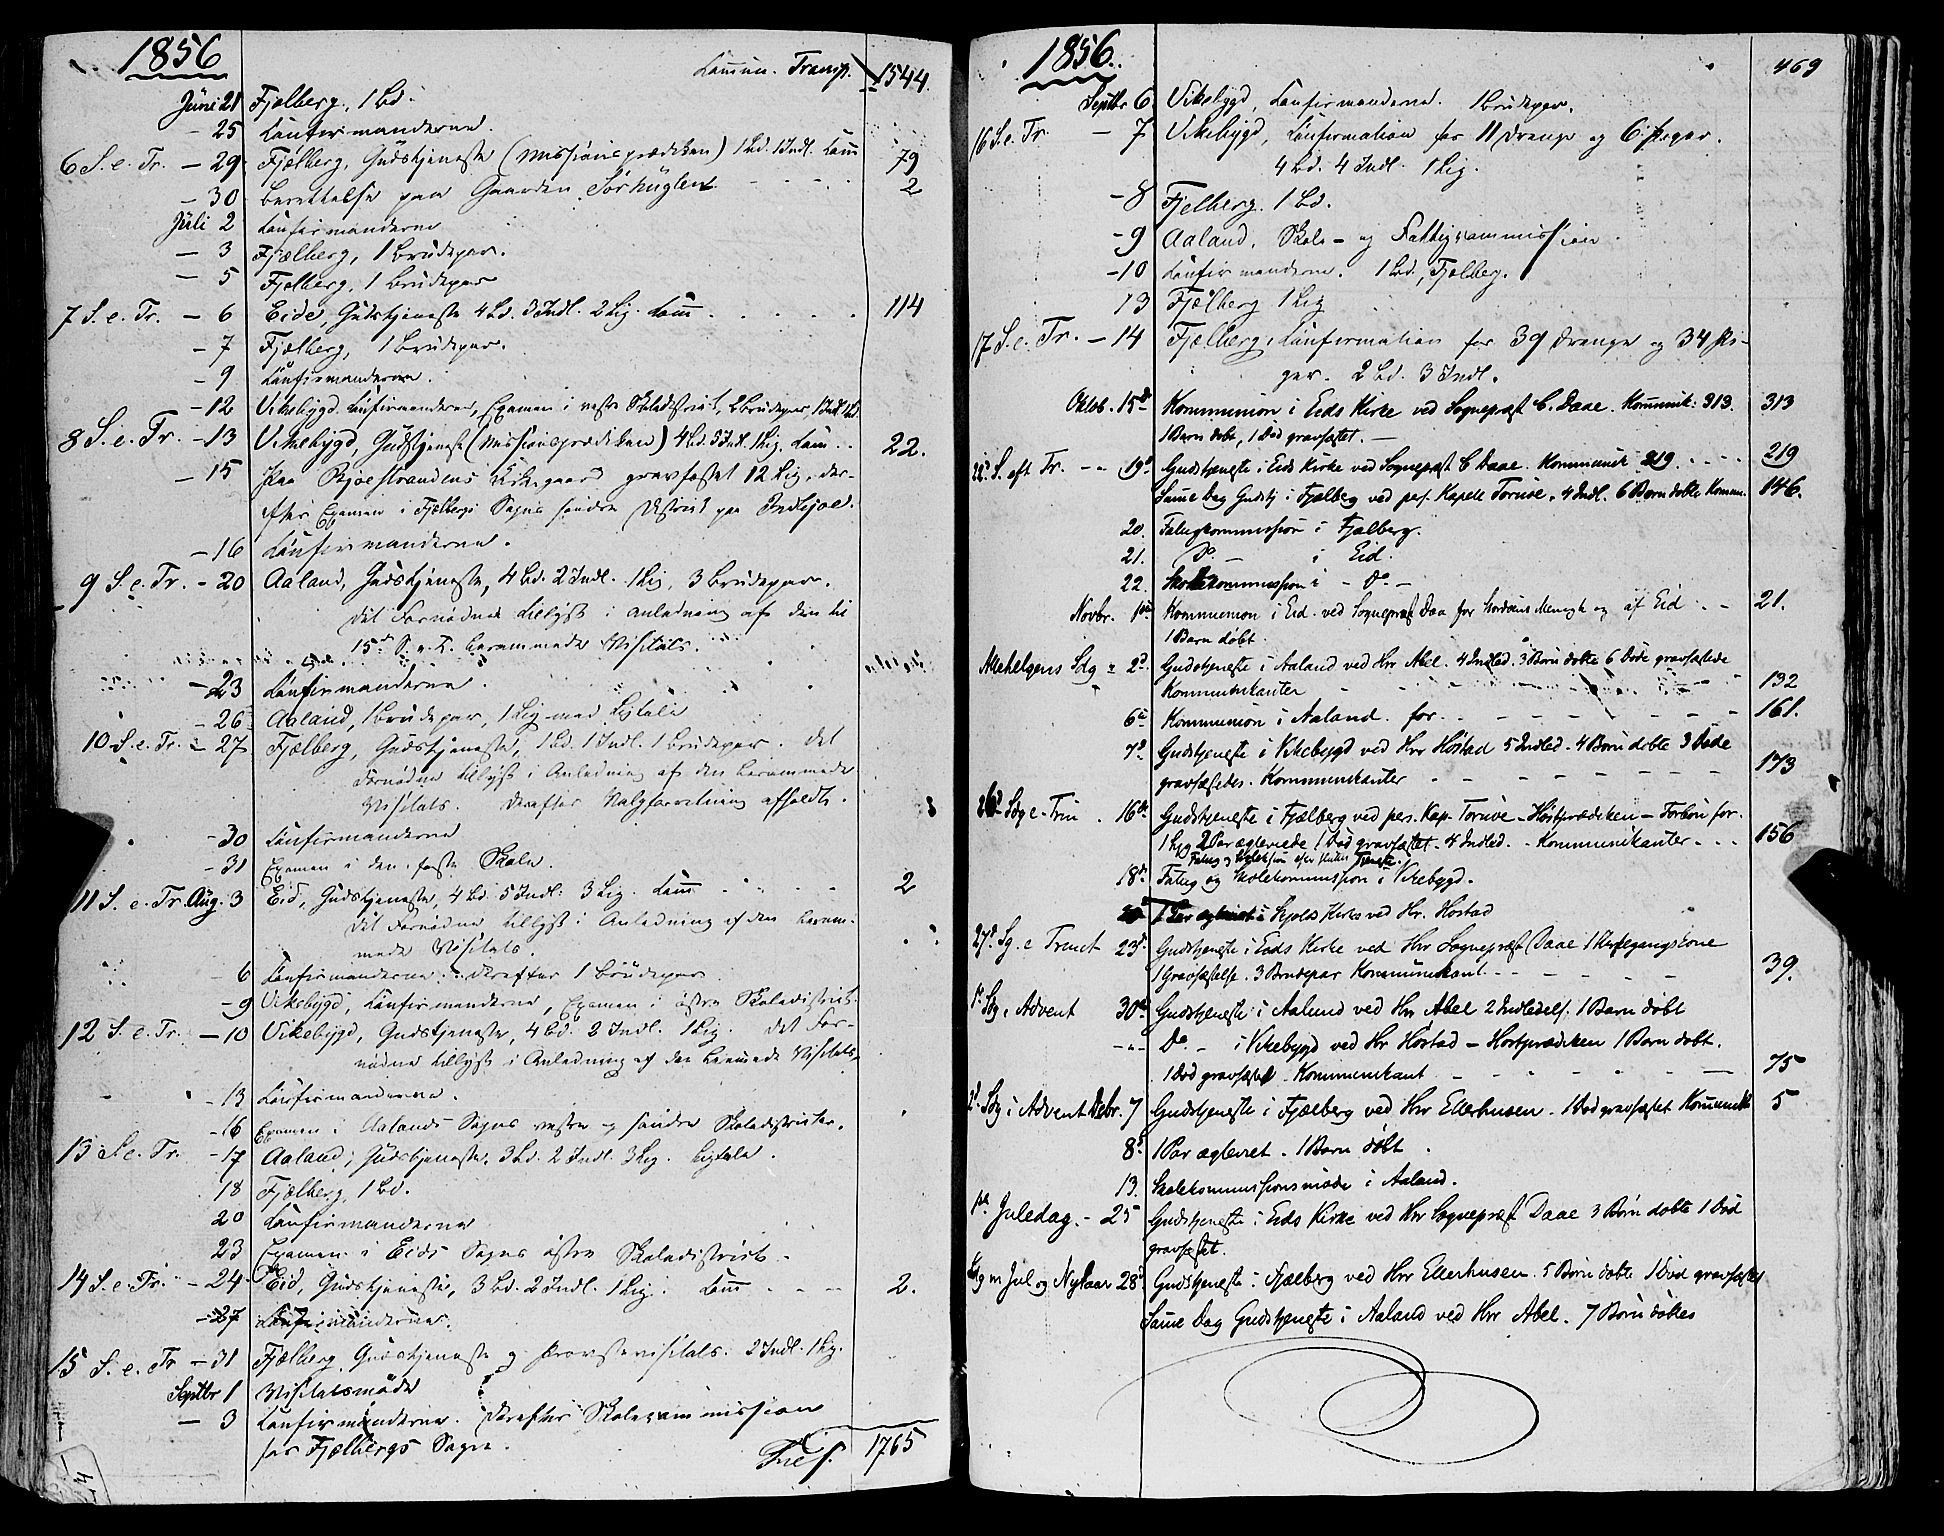 1856
Commun. Transp. 1544.
Juni 21 Fjelberg, 1 Bd.
- 25 Confirmanderne.
6 S. e. Tr. - 29 Fjelberg, Gudstjeneste (Missionsprædiken) 1 Bd. 1 Indl. Comm 79
- 30 Berettelse paa Gaarden Sørhuglen - - - - 2
Juli 2 Confirmanderne
- 3 Fjælberg, 1 Brudepar.
- 5 Fjelberg, 1 Brudepar
7 S. e. Tr. - 6 Eide, Gudstjeneste 4 Bd. 3 Indl. 2 Lig. Comm . . . . . 114
- 7 Fjelberg, 1 Brudepar.
- 9 Confirmanderne.
- 12 Vikebygd. Confirmanderne, Examen i vestre Skoledistrict, 2 Brudepar, 1 Indl. 1 Bd.
8 S. e. Tr. - 13 Vikebygd, Gudstjeneste (Missionsprædiken) 4 Bd. 5 Indl. 1 Lig. Comm . . 22.
- 15 Paa Bjoestrandens Kirkegaard gravfæstet 12 Lig, der-
efter Examen i Fjelbergs Sogns søndre District paa Indsjoe.
- 16 Confirmanderne.
9 S. e. Tr. - 20 Aaland, Gudstjeneste, 4 Bd. 2 Indl. 1 Lig, 3 Brudepar.
Det Fornødne tillyst i Anledning af den til
15de S. e. T. berammede Visitats.
- 23 Confirmanderne.
- 26 Aaland, 1 Brudepar, 1 Lig med Ligtale
10 S. e. Tr. - 27 Fjælberg, Gudstjeneste, 1 Bd. 1 Indl. 1 Brudepar. Det
Fornødne tillyst i Anledning af den berammede
Visitats. Derefter Valgforretning afholdt.
- 30 Confirmanderne
- 31 Examen i den faste Skole.
11 S. e. Tr. Aug. 3 Eid, Gudstjeneste, 4 Bd. 5 Indl. 3 Lig. Comm - - - - 2
Det Fornødne tillyst i Anledning af den beram-
mede Visitats.
6 Confirmanderne. Derefter 1 Brudepar.
- 9 Vikebygd, Confirmanderne, Examen i østre Skoledistrict.
12 S. e. Tr. - 10 Vikebygd, Gudstjeneste, 4 Bd. 2 Indl. 1 Lig. Det For-
nødne tillyst i Anledning af den beramede Visitats.
- 13 Confirmanderne.
- 16 Examen i Aalands Sogns vestre og søndre Skoledistricter.
13 S. e. Tr. - 17 Aaland, Gudstjeneste, 3 Bd. 2 Indl. 3 Lig. Ligtale.
18 Fjelberg, 1 Bd.
20 Confirmanderne
23 Examen i Eids Sogns østre Skoledistrict.
14 S. e. Tr. - 24 Eid, Gudstjeneste, 3 Bd. 2 Indl. 1 Lig. Comm - - - 2.
- 27 Confirmanderne.
15 S. e. Tr. - 31 Fjelberg, Gudstjeneste og Provstevisitats. 2 Indl. 1 Lig.
Septbr 1 Visitatsmøde
- 3 Confirmanderne. Derefter Skolecommission
for Fjelbergs Sogn.
1765
1856.
469
Septbr 6 Vikebygd, Confirmanderne. 1 Brudepar.
16 S. e. Tr. - 7 Vikebygd, Confirmation for 11 Drenge og 6 Piger.
4 Bd. 4 Indl. 1 Lig.
- 8 Fjelberg. 1 Bd.
- 9 Aaland, Skole- og Fattigcommission
- 10 Confirmanderne. 1 Bd., Fjelberg.
13 Fjelberg 1 Lig
17 S. e. Tr. - 14 Fjelberg, Confirmation for 39 Drenge og 34 Pi-
ger. 2 Bd. 3 Indl.
Oktob. 15de Kommunion i Eids Kirke ved Sognepræst C. Daae. Kommunik: 313. 313
1 Barn døbt, 1 Død gravfæstet. -
22de S. eft Tr. - - 19de Gudstjeneste i Eids Kirke ved Sognepræst C Daae. Kommunik 219 . . . . 219
Same Dag Gudstj i Fjælberg ved pers. Kapell Toruve. 4 Indl. 6 Børn døbte Kommn. 146.
20. Fattigkommission i Fjælberg.
21. Do - i Eid.
22. Skolekommission i - Do -
Novbr. 1ste Kommunion i Eid ved Sognepræst Daa for Menigh og af Eid . - 21.
Allehelgens Sdg - 2de Gudstjeneste i Aaland ved Hr Abel. 4 Indled. 3 Børn døbte 6 Døde gravfæstede
1 Barn døbt.
Kommunikanter - - - - - 132
6te Kommunion i Aaland for - - - - - 161.
7de Gudstjeneste i Vikebygd ved Hr Høstad 5 Indled. 4 Børn døbte 3 Døde
gravfæstedes. Kommunikanter - - - - - 173
26de Sdg e. Trin . 16de Gudstjeneste i Fjælberg ved pers. Kap. Toruve - Høstprædiken - Forbøn for.
1 Syg 2 Par ægteviede 1 Død gravfæstet. 4 Indled. - Kommunikanter - - . 156
18de Fattig og Skolekommission i Vikebygd.
1 Par ægteviet i Skjolds Kirke ved Hr. Høstad
27de Sg. e Trinit 23de Gudstjeneste i Eids Kirke ved Hr Sognepræst Daae 1 Kirkegangskone
1 Gravfæstelse. 3 Brudepar Kommunikant. - - - - - 39.
1ste Sdg i Advent 30te Gudstjeneste i Aaland ved Hr Abel 2 Indledels. 1 Barn døbt
- - - Do - i Vikebygd ved Hr Høstad - Høstprædiken 1 Barn døbt.
1 Død gravfæstet. Kommunikant - - - - - 75
2d Sdg i Advent Debr. 7 Gudstjeneste i Fjælberg ved Hr Ellerhusen. 1 Død gravfæstet Kommunik 5
8de 1 Par ægteviet. 1 Barn døbt .
13. Skolekommissionsmøde i Aaland.
1ste Juledag. - 25 Gudstjeneste i Eids Kirke ved Hr Sognepræst Daae 3 Børn døbte 1 Død
gravfæstet.
Sdg m Jul og Nytaar 28de Gudstjeneste i Fjælberg ved Hr Ellerhusen. 5 Børn døbte 1 Død gravfæstet
Same Dag Gudstjeneste i Aaland ved Hr Abel. 7 Børn døbtes